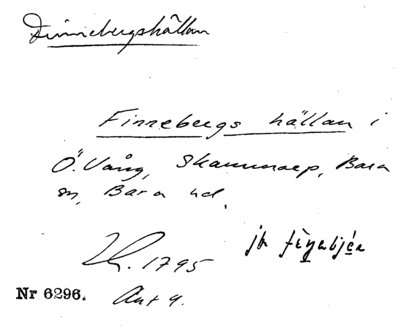 Finnebergshällan
Finnebergs hällan i
Ö. Vång, Skammarp, Bara
sn, Bara hd.
Kr. 1795
jb
Nr 6296. Akt 9.